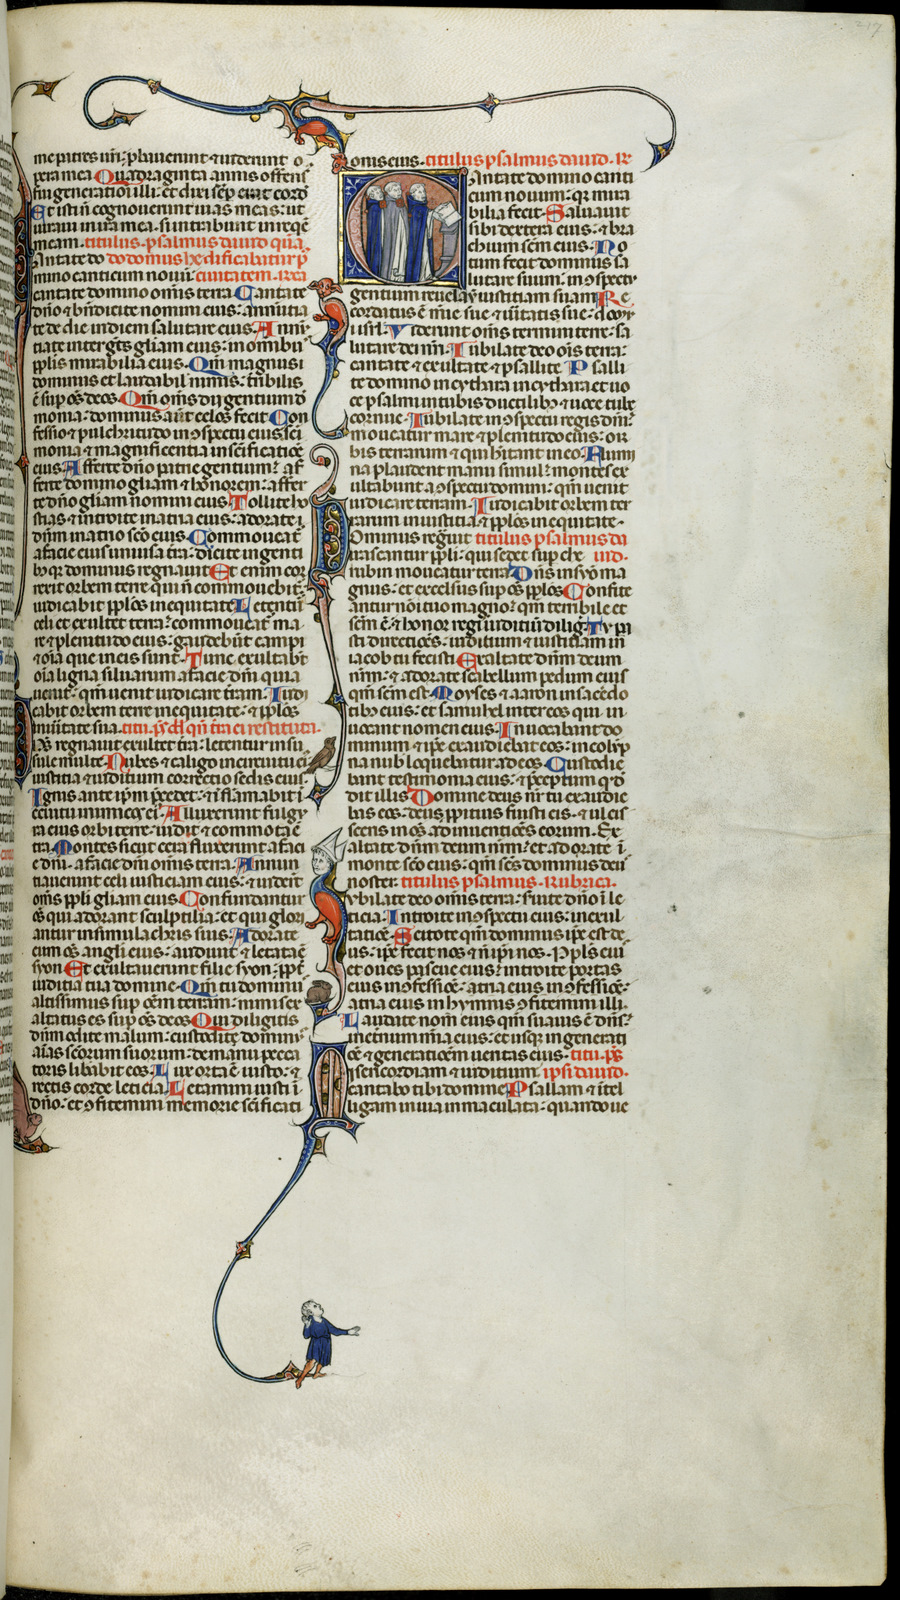 me patres vri: ꝓbauerunt ⁊ uiderunt o
pera mea Quadraginta annis offensꝰ
fui generationi illi: et dixi semp errāt cordē
Et isti nō cognouerunt uias meas: ut
iuraui in ira mea. si intrabunt in requiē
meam. titulus psalmus dauid qn̄
Cantate do do domus hedificabatur p9
mino canticum nouū: cantate
cantate domino omnis terra Cantate
dn̄o ⁊ bn̄dicite nomini eius: annūtia
te de die in diem salutare eius. Annū
tiate inter gētes gl̄iam eius: in omnibꝫ
pp̄lis mirabilia eius. Qm̄ magnus
dominus et laudabil nimis: t̄ribilis
ē sup om̄s deos. Qm̄ om̄s dii gentium de
monia: dominus aūt celos fecit Con
fessio ⁊ pulchritudo in ꝯspectu eius: sc̄i
monia ⁊ magnificentia in sc̄ificatiōe
eius Afferte dn̄o patrie gentium: af
ferte domino gl̄iam ⁊ honorem: affer
te dn̄o gl̄iam nomini eius Tollite ho
stias ⁊ introite in atria eius: adorate
dn̄m in atrio sc̄o eius Commoueat̄
a facie eius uniuersa t̄ra: dicite in genti
bꝫ qꝛ dominus regnauit Et enim cor
rexit orbem terre qui nō commouebit̄:
iudicabit pp̄los in equitate Letent̄
celi et exultet terra: commoueat̄ ma
re ⁊ plenitudo eius: gaudebūt campi
⁊ oīa que in eis sunt Tunc exultabūt
oīa ligna siluarum a facie dn̄i quia
uenit: qm̄ uenit iudicare t̄ram Iudi
cabit orbem terre in equitate: ⁊ pp̄los
in ūitate sua. titu. ps̄ dd̄ qn̄ t̄ra ei restituta.
Dn̄s regnauit exultet t̄ra: letentur insu
sule multe Nubes ⁊ caligo in circuitu eiꝰ
iustitia ⁊ iudicium correctio sedis eius
Ignis ante ip̄m p̄cedet: ⁊ īflammabit ī
circuitu inimicos eiꝰ Alluxerunt fulgu
ra eius orbi terre: uidit ⁊ commota ē
t̄ra Montes sicut cera fluxerunt a faci
e dn̄i: a facie dn̄i omnis terra. Annun
tiauerunt celi iusticiam eius: ⁊ uider̄t
om̄s pp̄li gl̄iam eius Confundantur
om̄s qui adorant sculptilia: et qui glori
antur in simulachris suis Adorate
eum om̄s angli eius: audiuit ⁊ letata ē
syon Et exultauerunt filie syon: ppt̄
iuditia tua domine Qm̄ tu dominus
altissimus sup oēm terram: nimis ex
altatus es sup om̄s deos Qui diligitis
dn̄m odite malum: custodit domin
aīas sc̄orum suorum: de manu pecca
toris libabit eos Lux orta ē iusto: ⁊
rectis corde leticia Letamini iusti ī
dn̄o: et ꝯfitemini memorie sc̄ificati
onis eius. titulus psalmus dauid. R
Cantate domino canti
cum nouum: qꝛ mira
bilia fecit. Saluauit
sibi dextera eius: ⁊ bra
chium sc̄m eius: No
tum fecit dominus sa
lutare suum: in ꝯspectu
gentium reuelauit iustitiam suam Re
cordatus ē mīe sue ⁊ ūitatis sue: domꝰ
isrl̄. Viderunt om̄s termini terre: sa
lutare dei nr̄i. Iubilate deo ōis terra:
cantate ⁊ exultate ⁊ psallite Psalli
te domino in cythara in cythara et uo
ce psalmi: in tubis ductilibꝫ ⁊ uoce tube
cornue. Iubilate in ꝯspectu regis dn̄i:
moueatur mare ⁊ plenitudo eius: or
bis terrarum ⁊ qui hītant in eo. Flumi
na plaudent manu simul: montes ex
ultabunt a ꝯspectu domini: qm̄ uenit
iudicare terram. Iudicabit orbem ter
rarum in iustitia: ⁊ pp̄los in equitate.
Dominus regnuit titulus psalmus da
irascantur pp̄li: qui sedet sup che uid.
rubin moueatur terra Dn̄s in syon ma
gnus: et excelsus sup om̄s pp̄los Confite
antur nōi tuo magno: qm̄ terribile et
sc̄m ē: ⁊ honor regis iuditiū diliḡt Tu pa
sti directiōes: iuditium ⁊ iustitiam in
iacob tu fecisti Exaltate dn̄m deum
nr̄m: ⁊ adorate scabellum pedum eius
qm̄ sc̄m est Moyses ⁊ aaron in sac̄do
tibꝫ eius: et samuhel inter eos qui in
uocant nomen eius. Inuocabant do
minum ⁊ ip̄e exaudiebat eos: in colūp
na nubis loquebatur ad eos Custodie
bant testimonia eius: ⁊ p̄ceptum qd̄
dit illis Domine deus nr̄ tu exaudie
bas eos: deus ꝓpitius fuisti eis: ⁊ ulcis
scens in om̄s adinuentiōes eorum. Ex
altate dn̄m deum nr̄m: et adorate ī
monte sc̄o eius: qm̄ sc̄s dominus deꝰ
noster titulus psalmus. Rubrica.
Iubilate deo omnis terra: seruite dn̄o ī le
ticia Introite in ꝯspectu eius: in exul
tatiōe. Scitote qm̄ dominus ip̄e est de
us: ip̄e fecit nos ⁊ nō ip̄i nos. Pp̄ls eiꝰ
et oues pascue eius: introite portas
eius in ꝯfessiōe: atria eius in ꝯfessiōe:
atria eius in hymnis ꝯfitemini illi
Laudate nom̄ eius qm̄ suauis ē dn̄s:
in eternum mīa eius: et usqꝫ in generati
oē ⁊ generatiōem ueritas eius. titu. ps̄
Misericordiam ⁊ iuditium ipsi dauid.
cantabo tibi domine Psallam ⁊ ītel
ligam in uia immaculata: quando ue